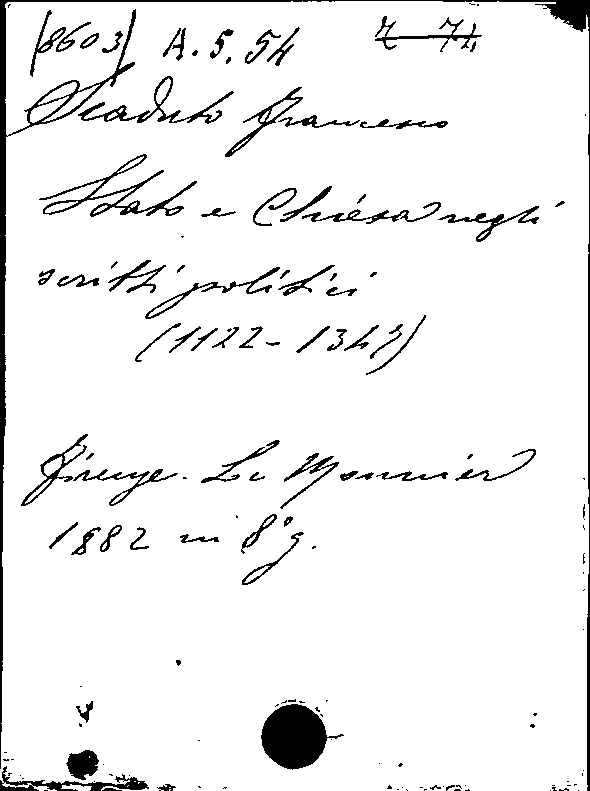 (8603) A. 5. 54 Z 74
Scaduto Francesco
Stato e Chiesa negli
scritti politici
(1122 - 1347)
Firenze. Le Monnier
1882 in 8° g.